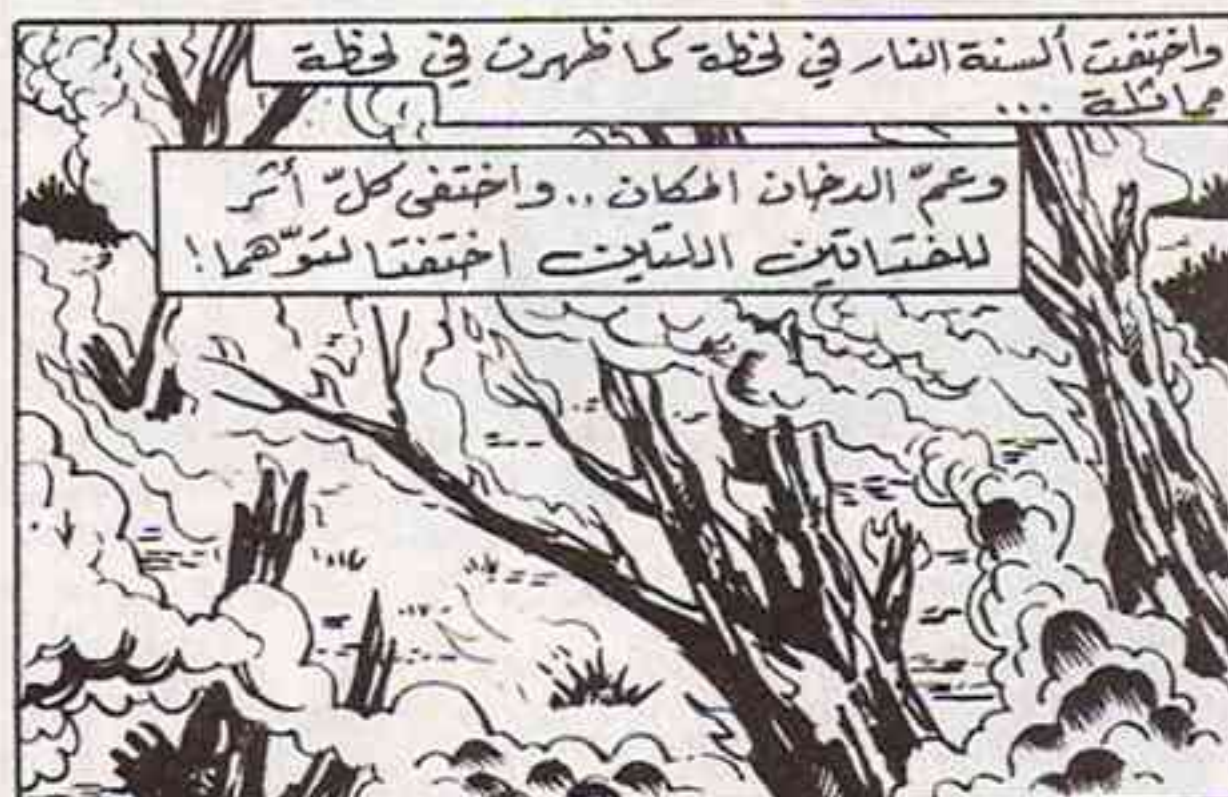 واختفت ألسنة النار في لحظة كما ظهرت في لحظة
مماثلة ...
وعمّ الدخان المكان .. واختفى كلّ أثر
للفتاتين اللتين اختفتا لتوّهما!